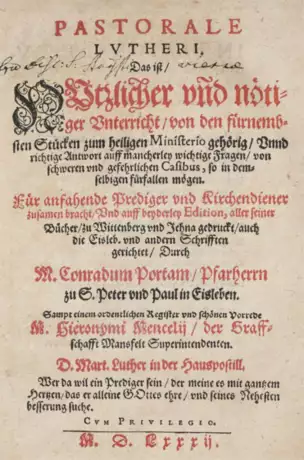 PASTORALE
LVTHERI,
Das ist /
Nützlicher vnd nöti-
ger Vnterricht / von den fürnemb-
sten Stücken zum heiligen Ministerio gehörig / Vnnd
richtige Antwort auff mancherley wichtige Fragen / von
schweren vnd gefehrlichen Casibus, so in dem-
selbigen fürfallen mögen.
Für anfahende Prediger vnd Kirchendiener
zusamen bracht / Vnd auff beyderley Edition, aller seiner
Bücher / zu Wittenberg vnd Jehna gedruckt / auch
die Eisleb. vnd andern Schrifften
gerichtet / Durch
M. Conradum Portam / Pfarherrn
zu S. Peter vnd Paul in Eisleben.
Sampt einem ordentlichen Register vnd schönen Vorrede
M. Hieronymi Mencelij / der Graff-
schafft Mansfelt Superintendenten.
D. Mart. Luther in der Hauspostill.
Wer da wil ein Prediger sein / der meine es mit gantzem
Hertzen / das er alleine Gottes ehre / vnd seines Nehesten
besserung suche.
CVM PRIVILEGIO.
M. D. Lxxxij.